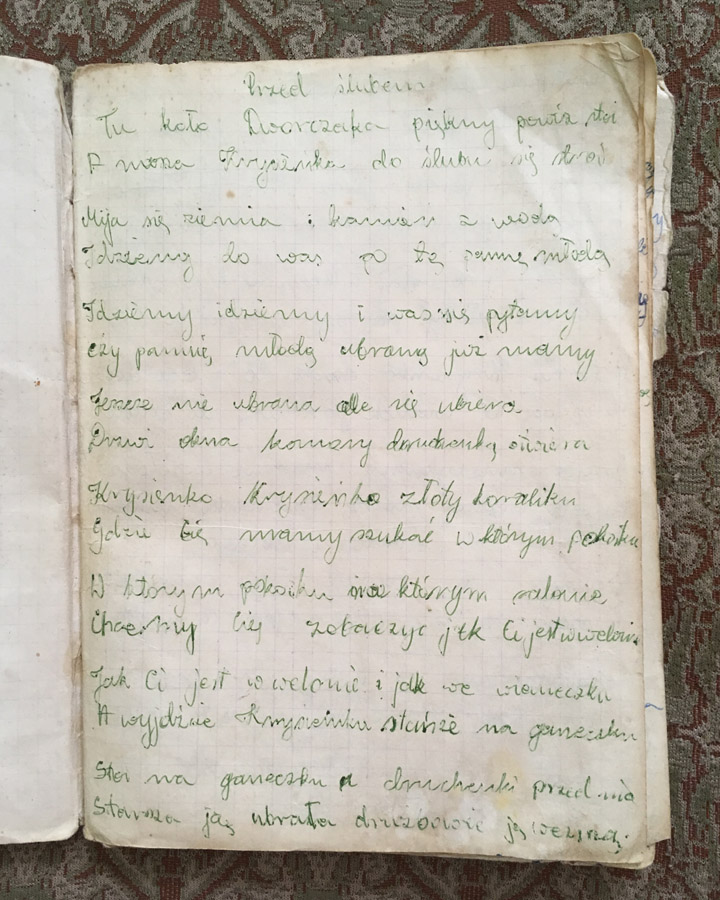 Przed ślubem
Tu koło Dworczaka piękny powóz stoi
A nasza Krysieńka do ślubu się stroi
Mija się ziemia i kamień z wodą
Idziemy do was po tą pannę młodą
Idziemy idziemy i was się pytamy
czy pannię młodą ubraną już mamy
Jeszcze nie ubrana ale się ubiera
Drzwi okna komory druchenką otwiera
Krysieńko Krysieńko złoty koraliku
Gdzie Cię mamy szukać w którym pokoiku
W którym pokoiku w którym salonie
Chcemy Cię zobaczyć jak Ci jest w welonie
Jak Ci jest w welonie i jak we wianeczku
A wyjdzie Krysieńka stanie na ganeczku
Stoi na ganeczku a druchenki przed nią
Starsza ją ubrała drużbowie ją wezmą.